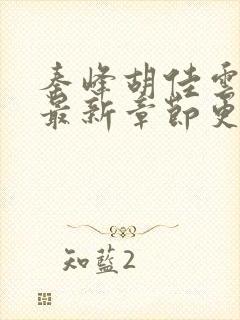 秦峰胡佳雲
最新章節更
知藍2